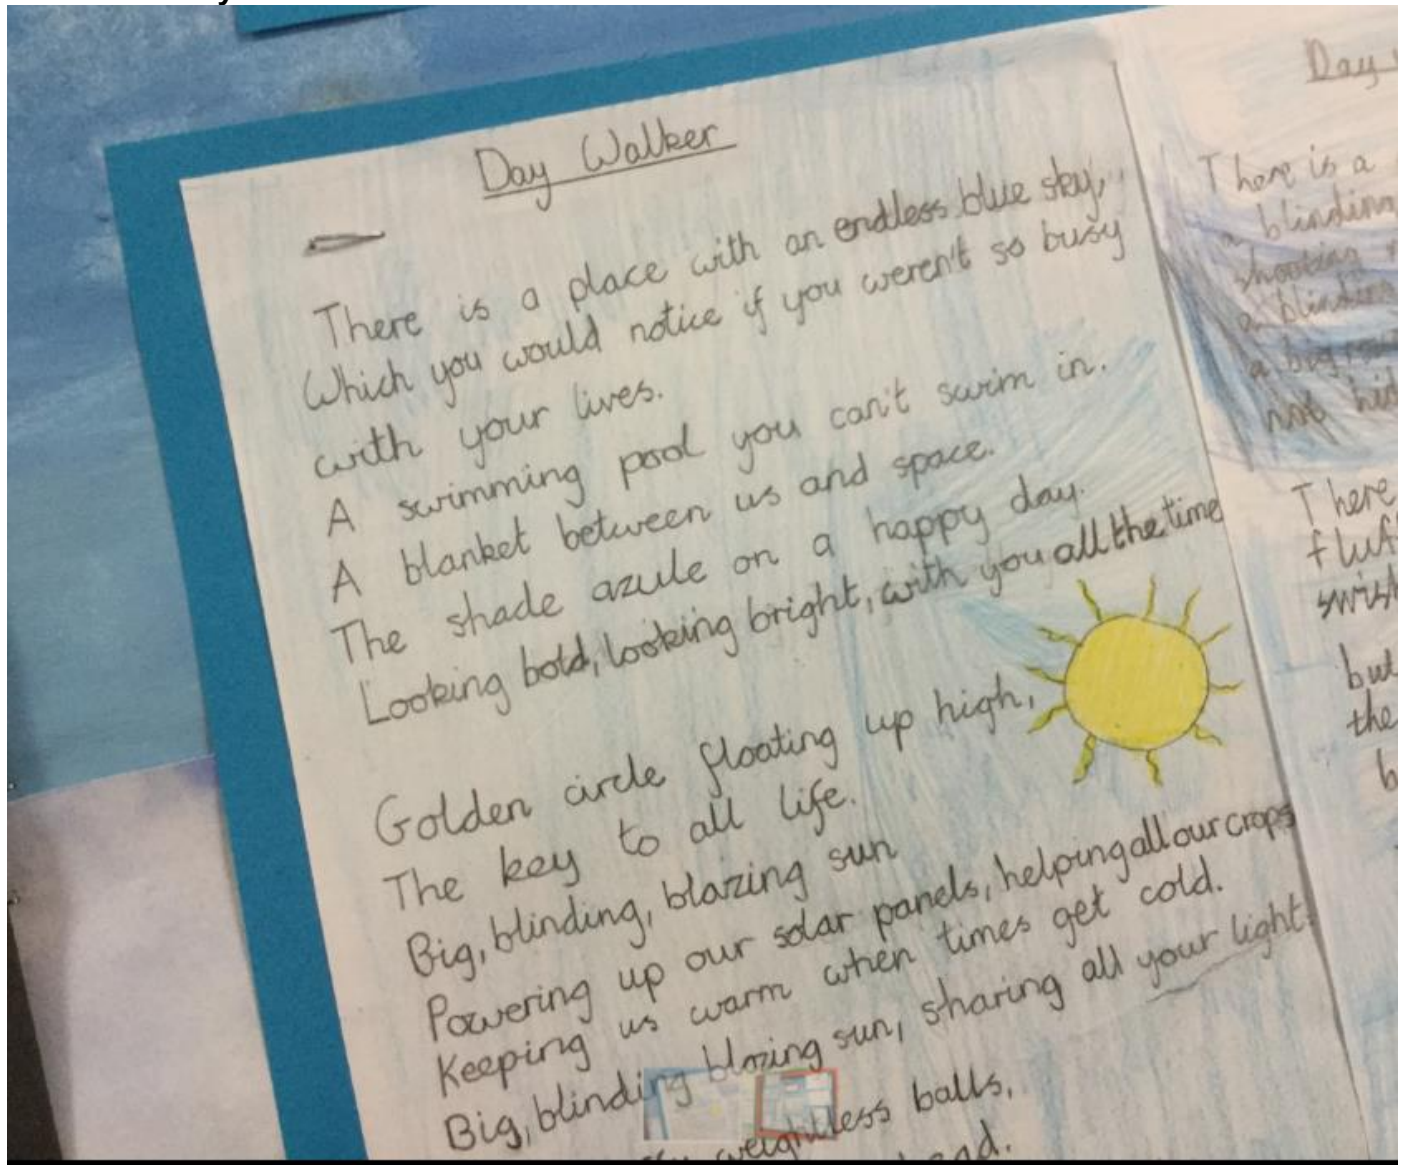 Day Walker
There is a place with an endless blue sky,
Which you would notice if you weren't so busy
with your lives.
A swimming pool you can't swim in.
A blanket between us and space.
The shade azule on a happy day.
Looking bold, looking bright, with you all the time
Golden circle floating up high,
The key to all life.
Big, blinding, blazing sun
Powering up our solar panels, helping all our crops
Keeping us warm when times get cold.
Big, blinding blazing sun, sharing all your light.
weightless balls,
Day
There is a
a blinding
shooting
a blinding
a big
not hid
There
fluf
swish
but
the
b